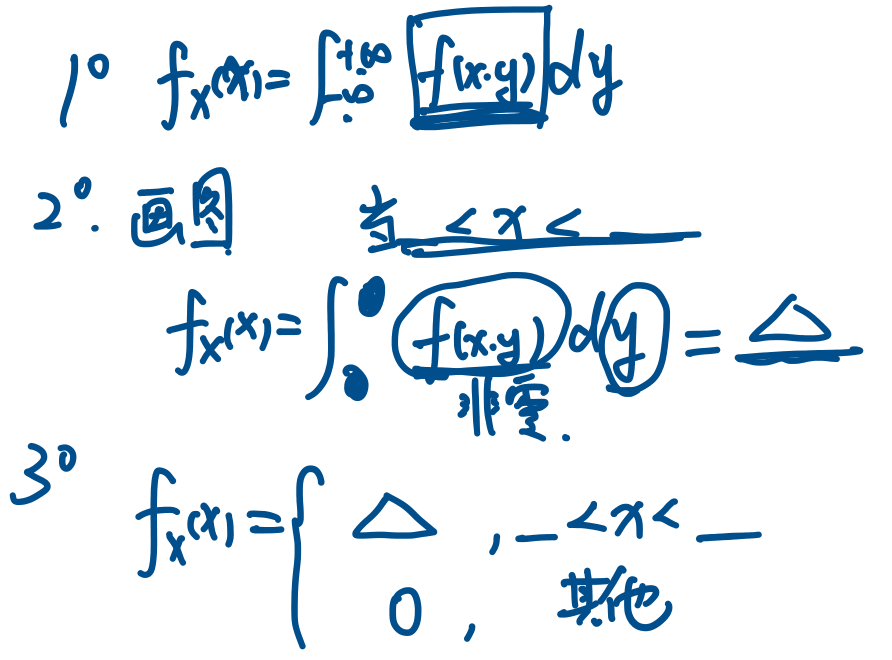 1° f_X(x)=∫_{-∞}^{+∞} f(x.y) dy
2°. 画图 当 __ < x < __
f_X(x)=∫ f(x.y) dy = △
非零.
3° f_X(x)={ △ , __ < x < __
0 , 其他